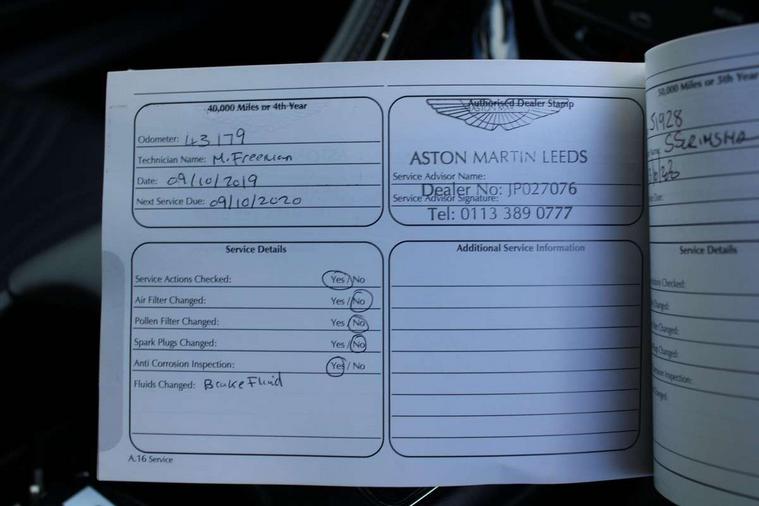 40,000 Miles or 4th Year
Odometer: 43179
Technician Name: M. Freeman
Date: 09/10/2019
Next Service Due: 09/10/2020
Authorised Dealer Stamp
ASTON MARTIN LEEDS
Service Advisor Name:
Dealer No: JP027076
Service Advisor Signature:
Tel: 0113 389 0777
Service Details
Service Actions Checked: Yes / No
Air Filter Changed: Yes / No
Pollen Filter Changed: Yes / No
Spark Plugs Changed: Yes / No
Anti Corrosion Inspection: Yes / No
Fluids Changed: Brake Fluid
Additional Service Information
A.16 Service
50,000 Miles or 5th Year
51928
Service Details
Checked:
Changed:
Changed:
Changed:
Inspection: